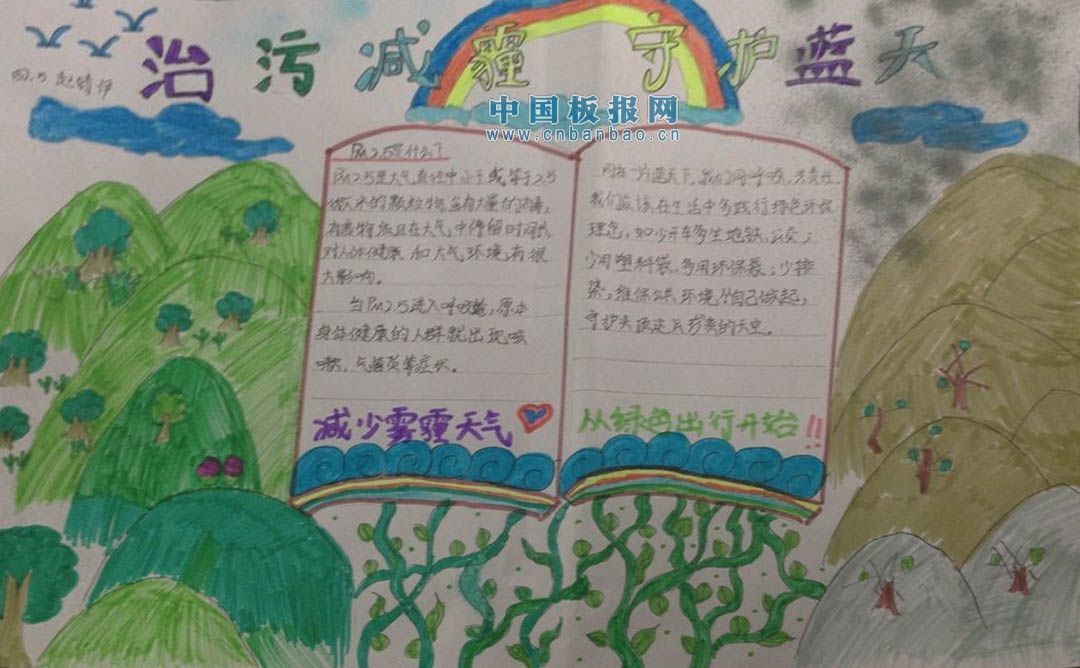 治污减霾 守护蓝天
四.5 赵婧伊
中国板报网
www.cnbanbao.cn
PM2.5是什么?
PM2.5是大气直径中小于或等于2.5
微米的颗粒物,含有大量的有毒,
有害物质且在大气中停留时间长
对人体健康和大气环境有很
大影响。
当PM2.5进入呼吸道,原本
身体健康的人群就出现咳
嗽,气管炎等症状。
减少雾霾天气
同在一片蓝天下,我们同呼吸,共责任,
我们应该在生活中多践行绿色环保
理念,如少开车多坐地铁,公交;
少用塑料袋,多用环保袋;少排
染,维保公共环境从自己做起,
守护头顶这片岁美的天空。
从绿色出行开始!!